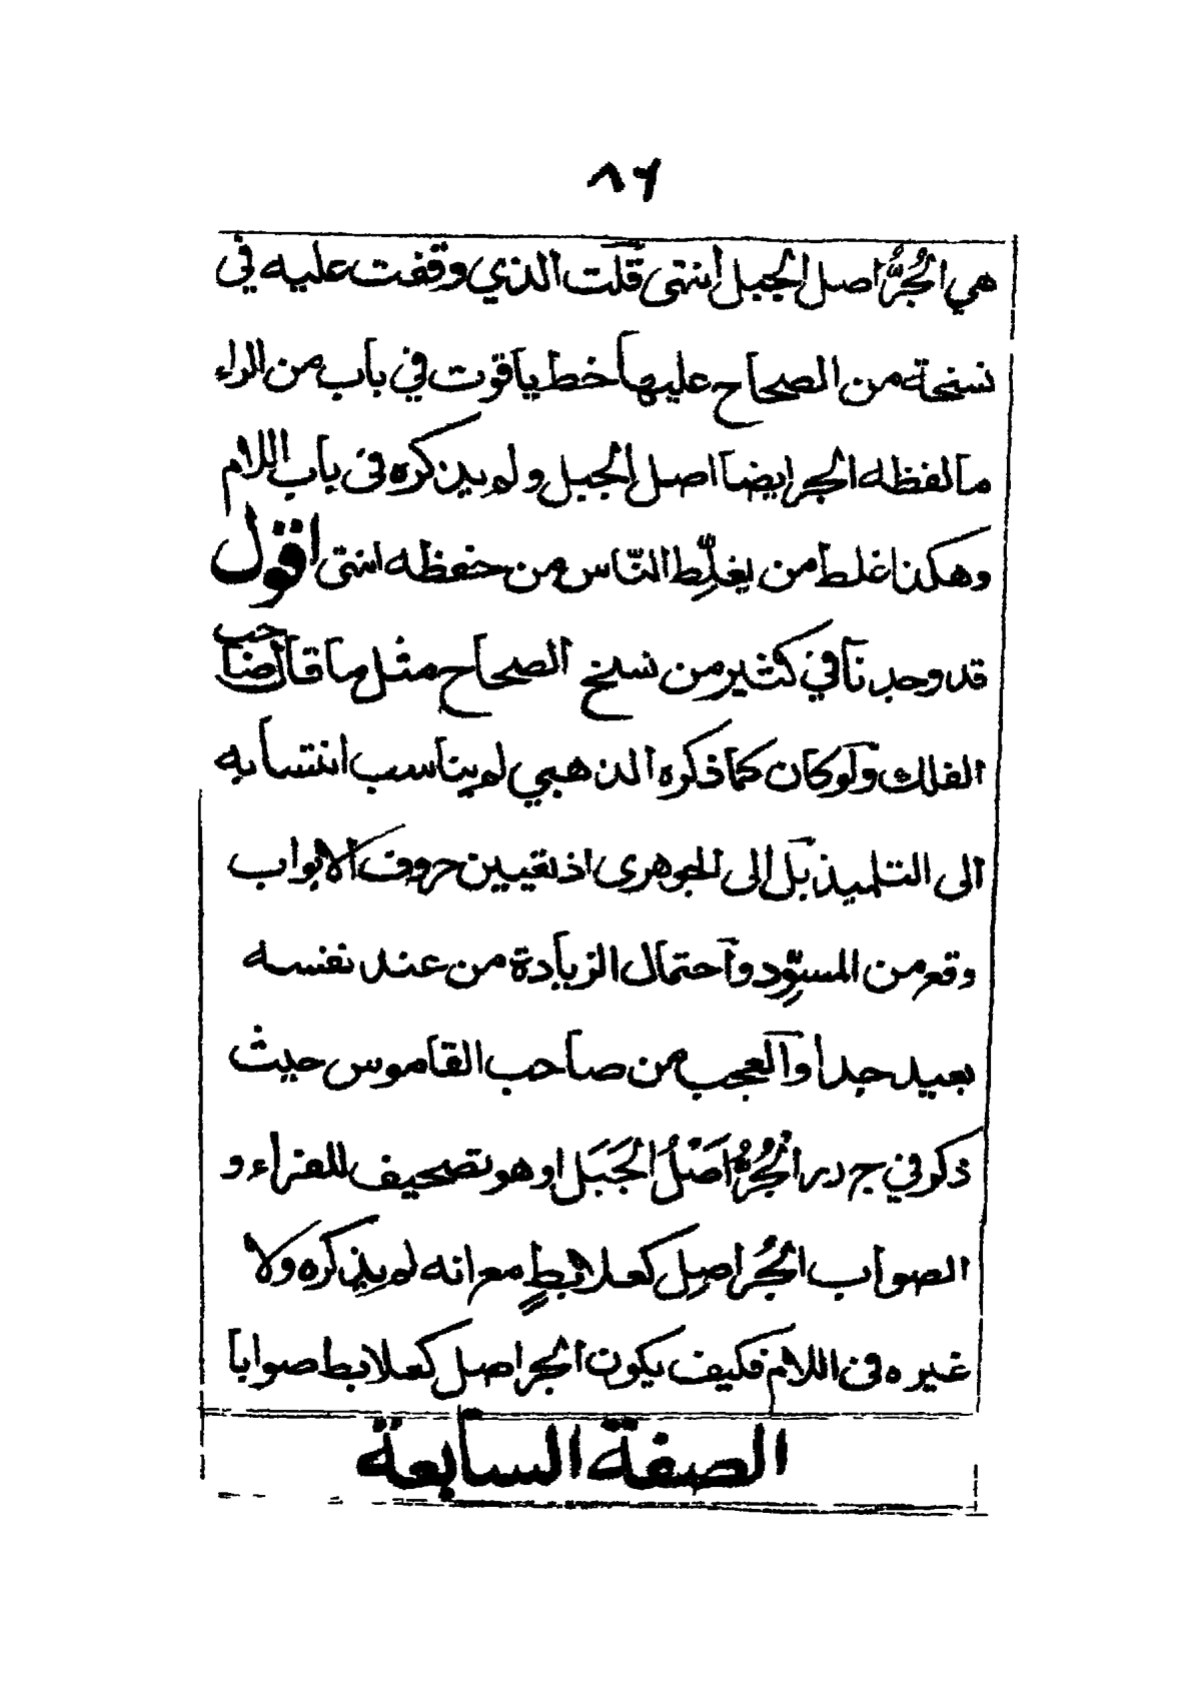 ٨٦
هي الجُرُّ اصل الجبل انتهى قلت الذي وقفت عليه في
نسخة من الصحاح عليها خط ياقوت في باب من الراء
ما لفظه الجر ايضا اصل الجبل ولم يذكره في باب اللام
وهكذا غلط من يغلِّط النّاس من حفظه انتهى اقول
قد وجدنا في كثير من نسخ الصحاح مثل ما قال صاحب
الفلك ولو كان كما ذكره الذهبي لم يناسب انتسابه
الى التلميذ بل الى الجوهرى اذ تعيين حروف الابواب
وقع من المسوِّد واحتمال الزيادة من عند نفسه
بعيد جدا والعجب من صاحب القاموس حيث
ذكر في ج ر ر الجُرُّ اَصْلُ الجَبَلِ او هو تصحيف للفراء و
الصواب الجُراصل كعلابطٍ مع انه لم يذكره ولا
غيره في اللام فكيف يكون الجراصل كعلابط صوابا
الصفة السابعة